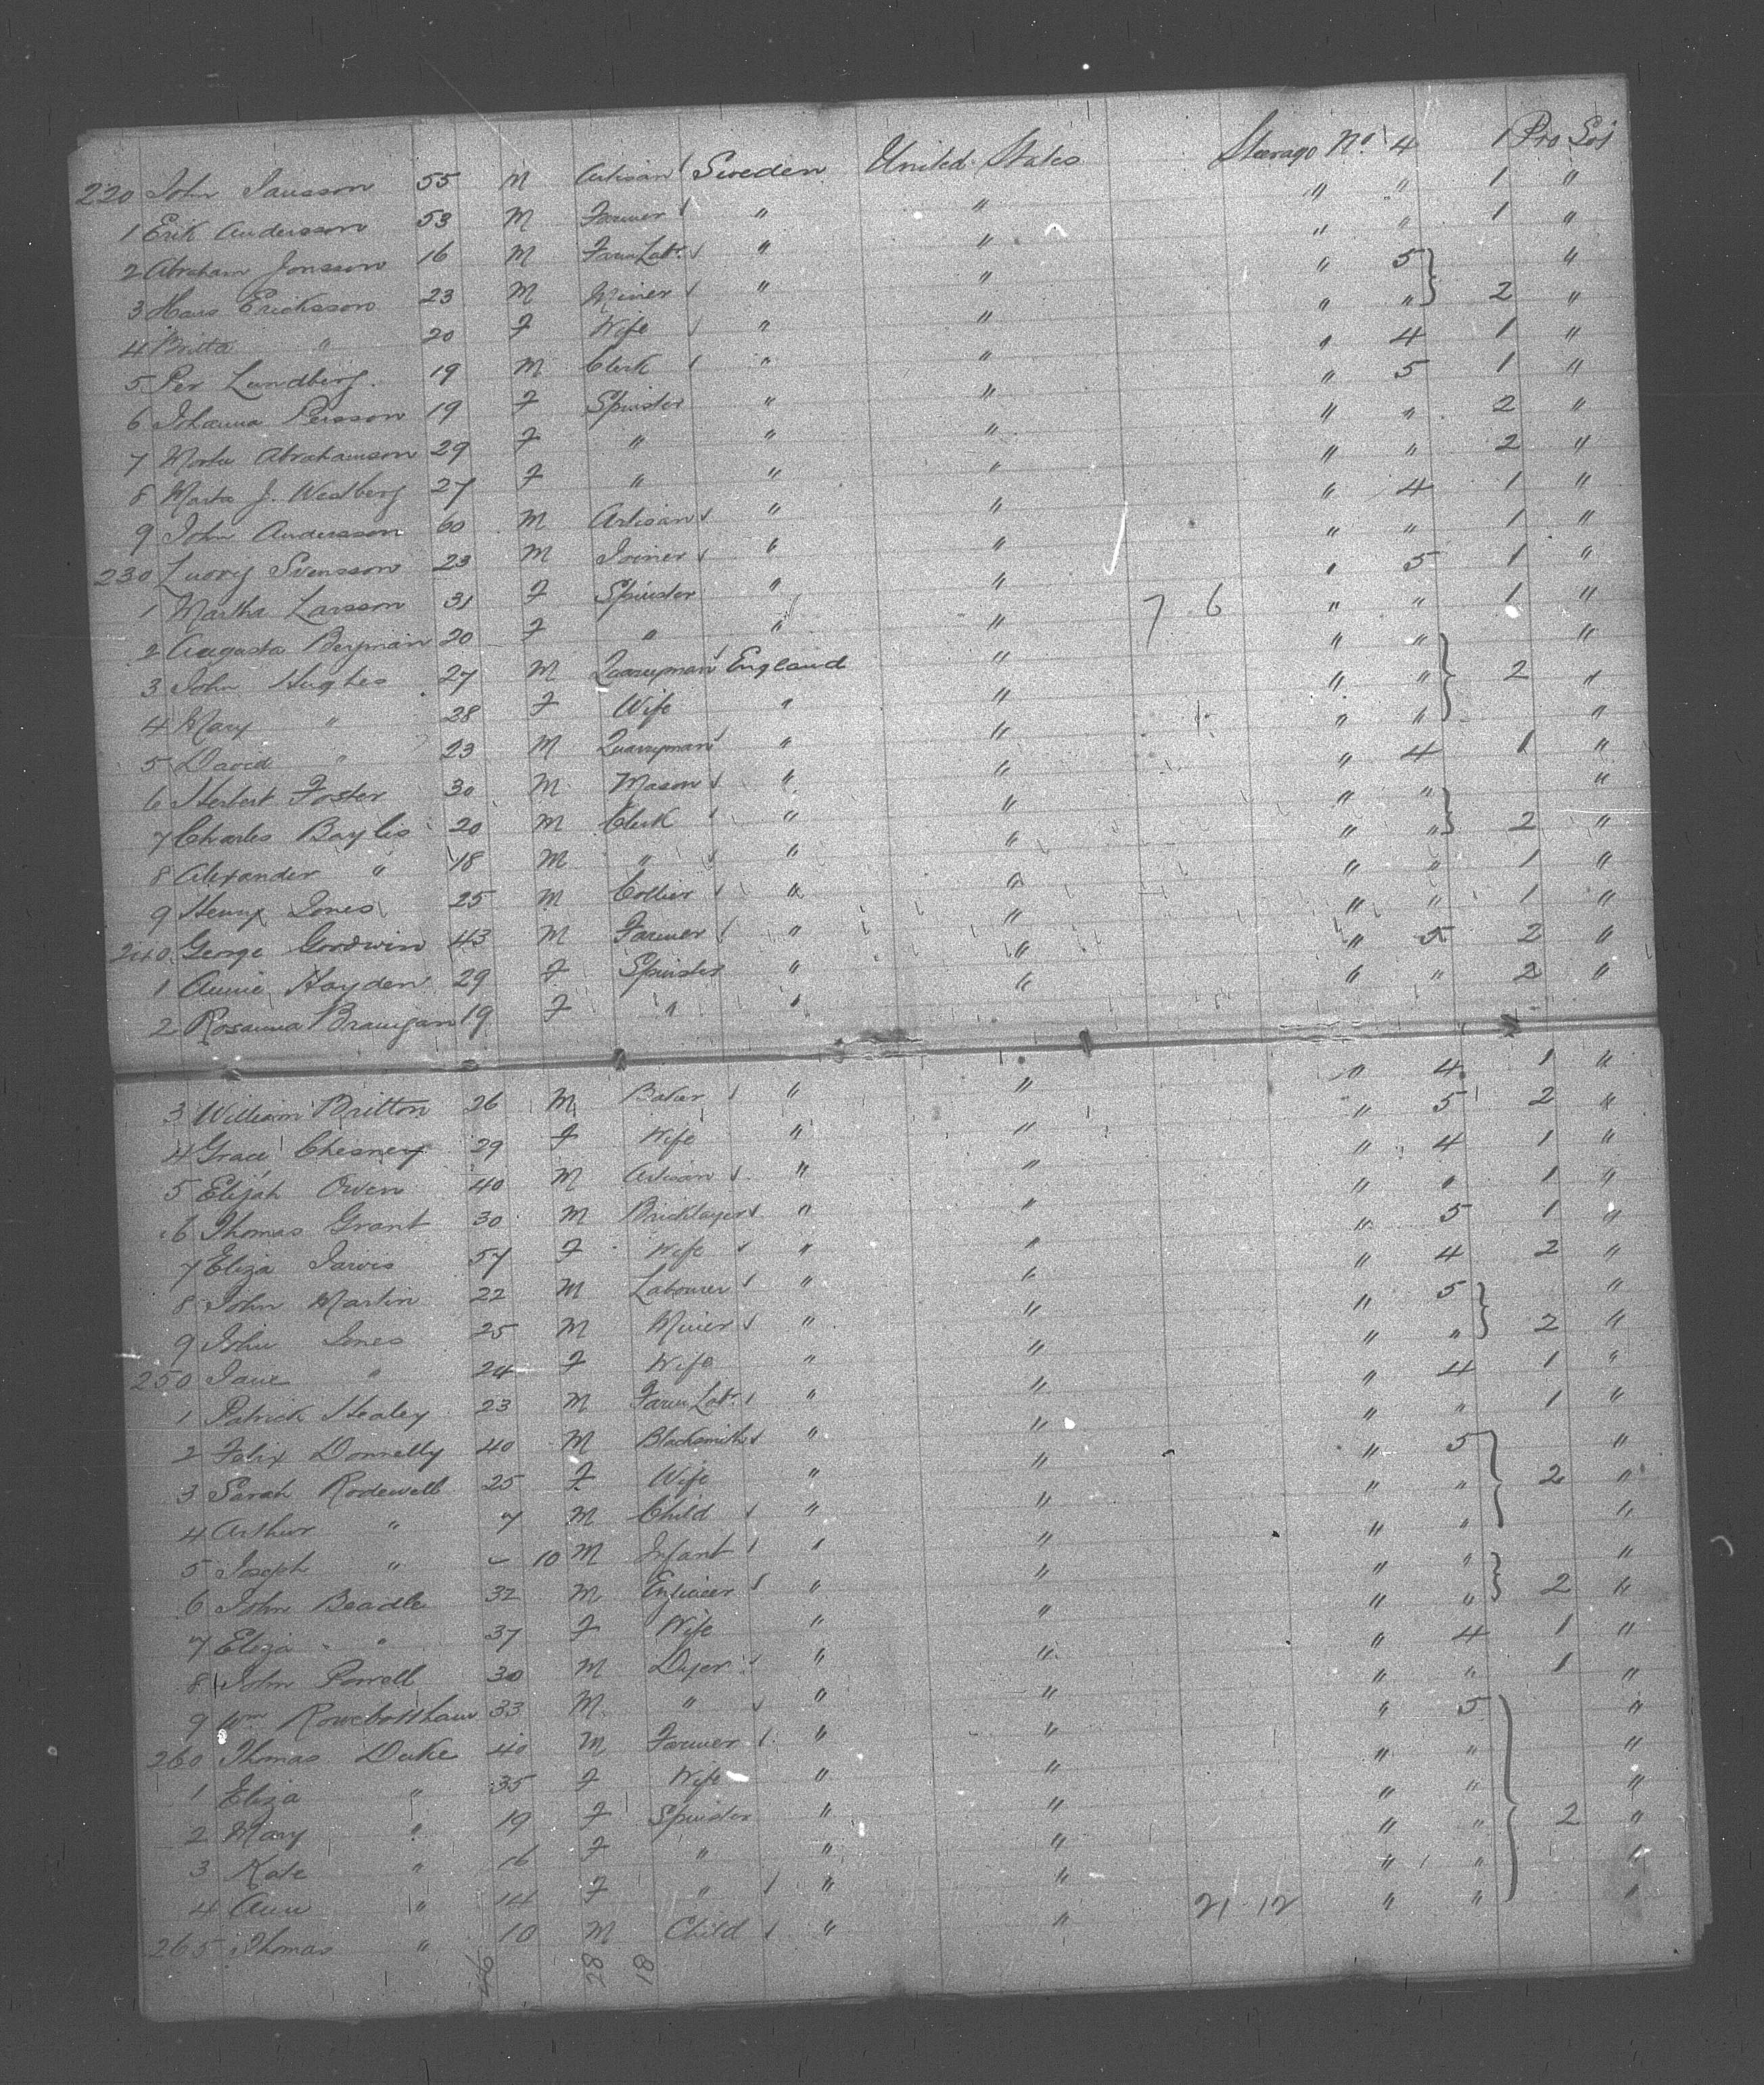 220 John Jansson 55 M Artisan Sweden United States Steerage No. 4 1 Pro Sojn
1 Erik Andersson 53 M Farmer " " " " 1 "
2 Abraham Jonsson 16 M Farm Labr. " " " " 1 "
3 Hans Ericksson 23 M Miner " " " 5 "
4 Britta " 20 F Wife " " " " 2 "
5 Per Lundberg 19 M Clerk " " " 4 1 "
6 Johanna Persson 19 F Spinster " " " 5 1 "
7 Marta Abrahamson 29 F " " " " " 2 "
8 Marta J. Westberg 27 F " " " " " 2 "
9 John Andersson 60 M Artisan " " " 4 1 "
230 Ludvig Svensson 23 M Joiner " " " " 1 "
1 Martha Larsson 31 F Spinster " " " 5 1 "
2 Augusta Bergman 20 F " " " 7 6 " " 1 "
3 John Hughes 27 M Quarryman England " " " "
4 Mary " 28 F Wife " " " " 2 "
5 David " 23 M Quarryman " " " " "
6 Herbert Foster 30 M Mason " " " 4 1 "
7 Charles Baylis 20 M Clerk " " " " "
8 Alexander " 18 M " " " " " 2 "
9 Henry Jones 25 M Collier " " " " 1 "
240 George Goodwin 43 M Farmer " " " " 1 "
1 Annie Hayden 29 F Spinster " " " 5 2 "
2 Rosanna Branigan 19 F " " " " " 2 "
3 William Britton 26 M Baker " " " 4 1 "
4 Grace Chesney 29 F Wife " " " 5 2 "
5 Elijah Owen 40 M Artisan " " " 4 1 "
6 Thomas Grant 30 M Bricklayer " " " " 1 "
7 Eliza Jarvis 57 F Wife " " " 5 1 "
8 John Martin 22 M Labourer " " " 4 2 "
9 John Jones 25 M Miner " " " 5 "
250 Jane " 24 F Wife " " " " 2 "
1 Patrick Healey 23 M Farm Labr. " " " 4 1 "
2 Felix Donnelly 40 M Blacksmith " " " " 1 "
3 Sarah Rodewell 25 F Wife " " " 5 "
4 Arthur " 7 M Child " " " " 2 "
5 Joseph " - 10 M Infant " " " " "
6 John Beadle 32 M Engineer " " " " "
7 Eliza " 37 F Wife " " " " 2 "
8 John Powell 30 M Dyer " " " 4 1 "
9 Wm Rowbottham 33 M " " " " " 1 "
260 Thomas Duke 40 M Farmer " " " 5 "
1 Eliza " 35 F Wife " " " " "
2 Mary " 19 F Spinster " " " " "
3 Kate " 16 F " " " " " 2 "
4 Ann " 14 F " " " " " "
265 Thomas " 10 M Child " " 21 12 " " "
46 28 18